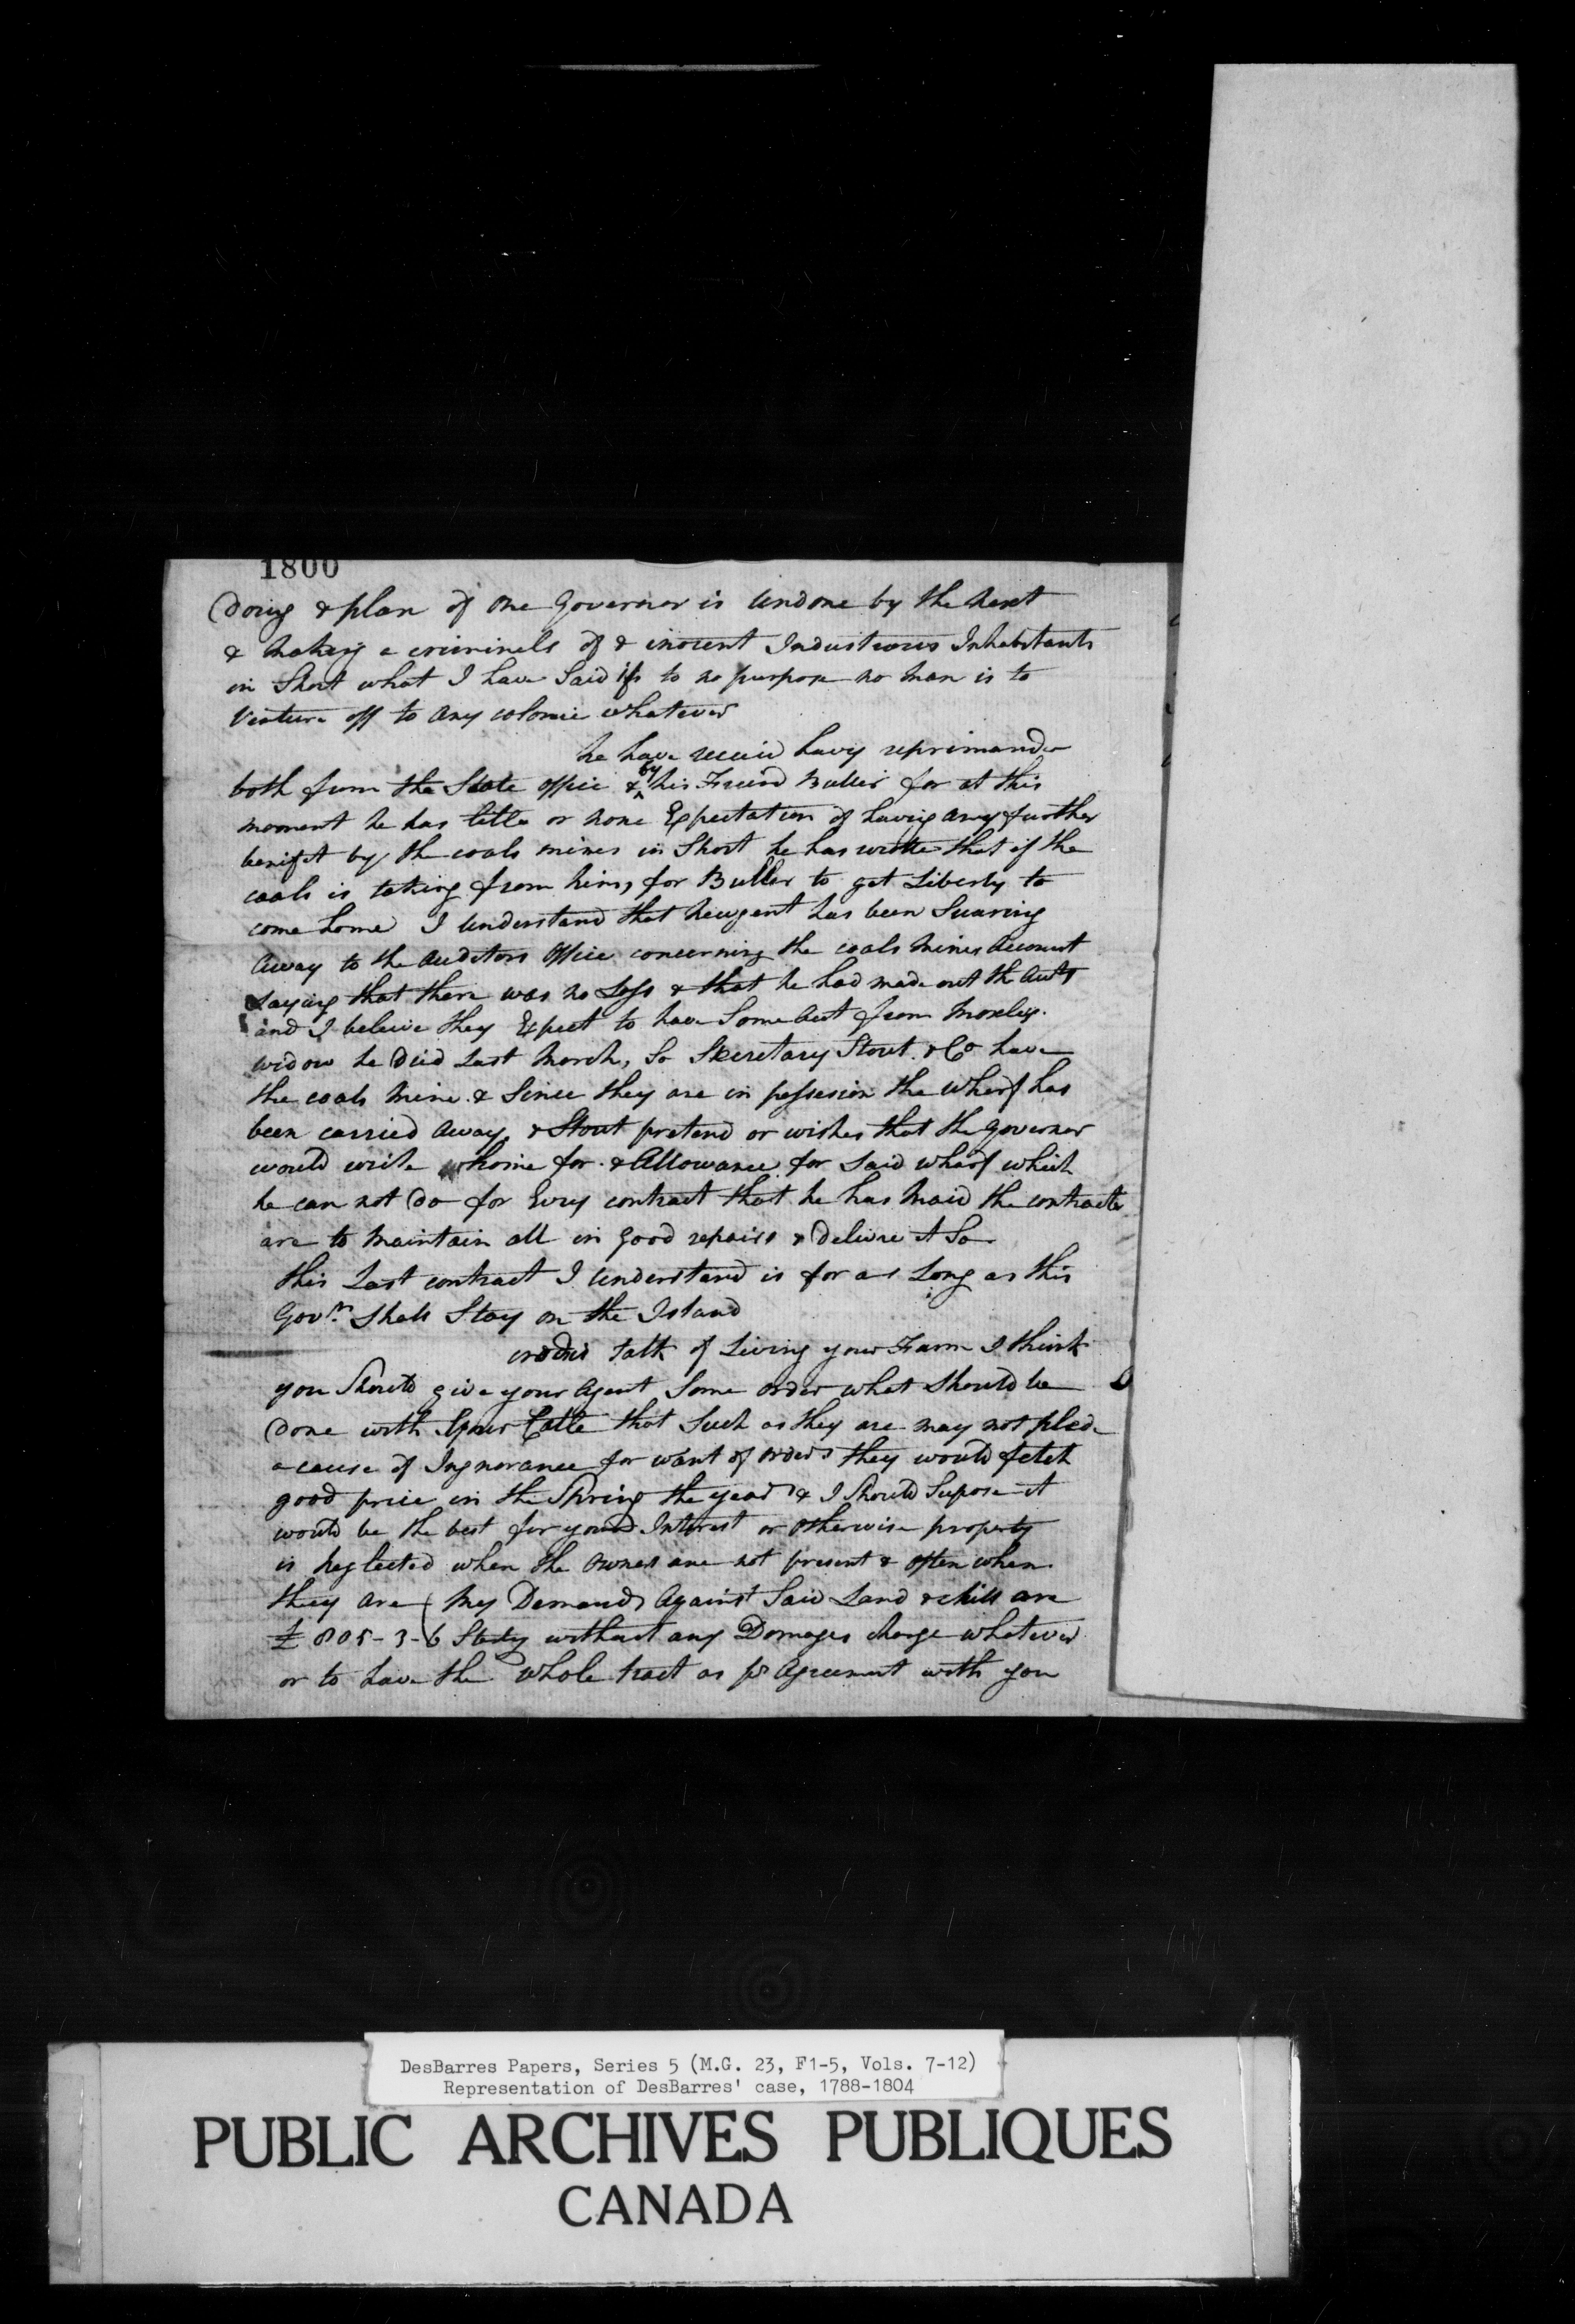 1800
Doing & plan of one Governor is undone by the Next
& Making a criminels of & inocent Industrious Inhabitants
in Short what I have Said is to no purpose no Man is to
Venture off to any colonie whatever
he have receivd havy reprimands
both from the State office & by his Freind Buller for at this
moment he has little or none Expectation of having any further
benifit by the coals mines in Short he has wrotte that if the
coals is taking from him, for Buller to get Liberty to
come home I understand that Newgent has been Swaring
away to the Auditors office concerning the coals Mines Account
saying that there was no Loss & that he had made out the Auts
and I beleive they Expect to have Some Aut from Moxleys
widow he Died Last March, So Secretary Stout & Co have
the coals Mine & Since they are in possesion the Wharf has
been carried away, & Stout pretend or wishes that the Governor
would write home for & Allowance for Said wharf which
he can not Do for Evry contract that he has Maid the contracts
are to Maintain all in Good repairs & Delivre it So
this Last contract I understand is for as Long as this
Govnr Shall Stay on the Island
talk of Living your Farm I think
you Should give your Agent Some order what Should be
Done with your Catle that Such as they are may not plead
a cause of Ingnorance for want of orders they would fetch
good price in the Spring the year & I Should Supose it
would be the best for your Intrest or otherwise property
is Neglected when the owners are not present & often when
they are My Demands Against Said Land & Mill are
£ 805-3-6 Sterlg without any Domages charge whatever
or to have the whole tract as pr Agreement with you
DesBarres Papers, Series 5 (M.G. 23, F1-5, Vols. 7-12)
Representation of DesBarres' case, 1788-1804
PUBLIC ARCHIVES PUBLIQUES
CANADA